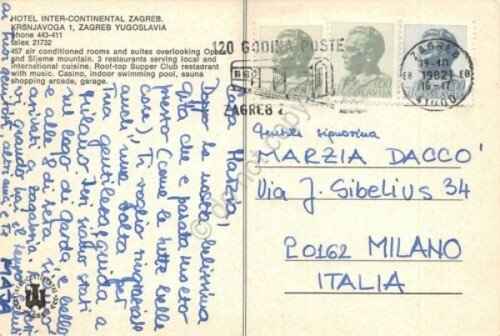 HOTEL INTER-CONTINENTAL ZAGREB.
KRŠNJAVOGA 1, ZAGREB YUGOSLAVIA
phone 443-411
telex 21732
457 air conditioned rooms and suites overlooking Opera
and Sljeme mountain. 3 restaurants serving local and
international cuisine. Roof-top Supper Club restaurant
with music. Casino, indoor swimming pool, sauna
shopping arcade, garage.
120 GODINA POŠTE
ZAGREB
ZAGREB
19-10
1982
16-17
41000
Cara Marzia,
Dopo la nostra bellissima
gita che è passata molto
presto (come le tutte belle
cose), Ti voglio ringraziare
una volta per
Tua gentilezza guida a
Milano. Poi siamo stati
sul lago di Garda
e alle 8 di sera
arrivati a Zagabria.
Ti
MAJA
Gentile signorina
MARZIA DACCO'
Via J. Sibelius 34
20162 MILANO
ITALIA